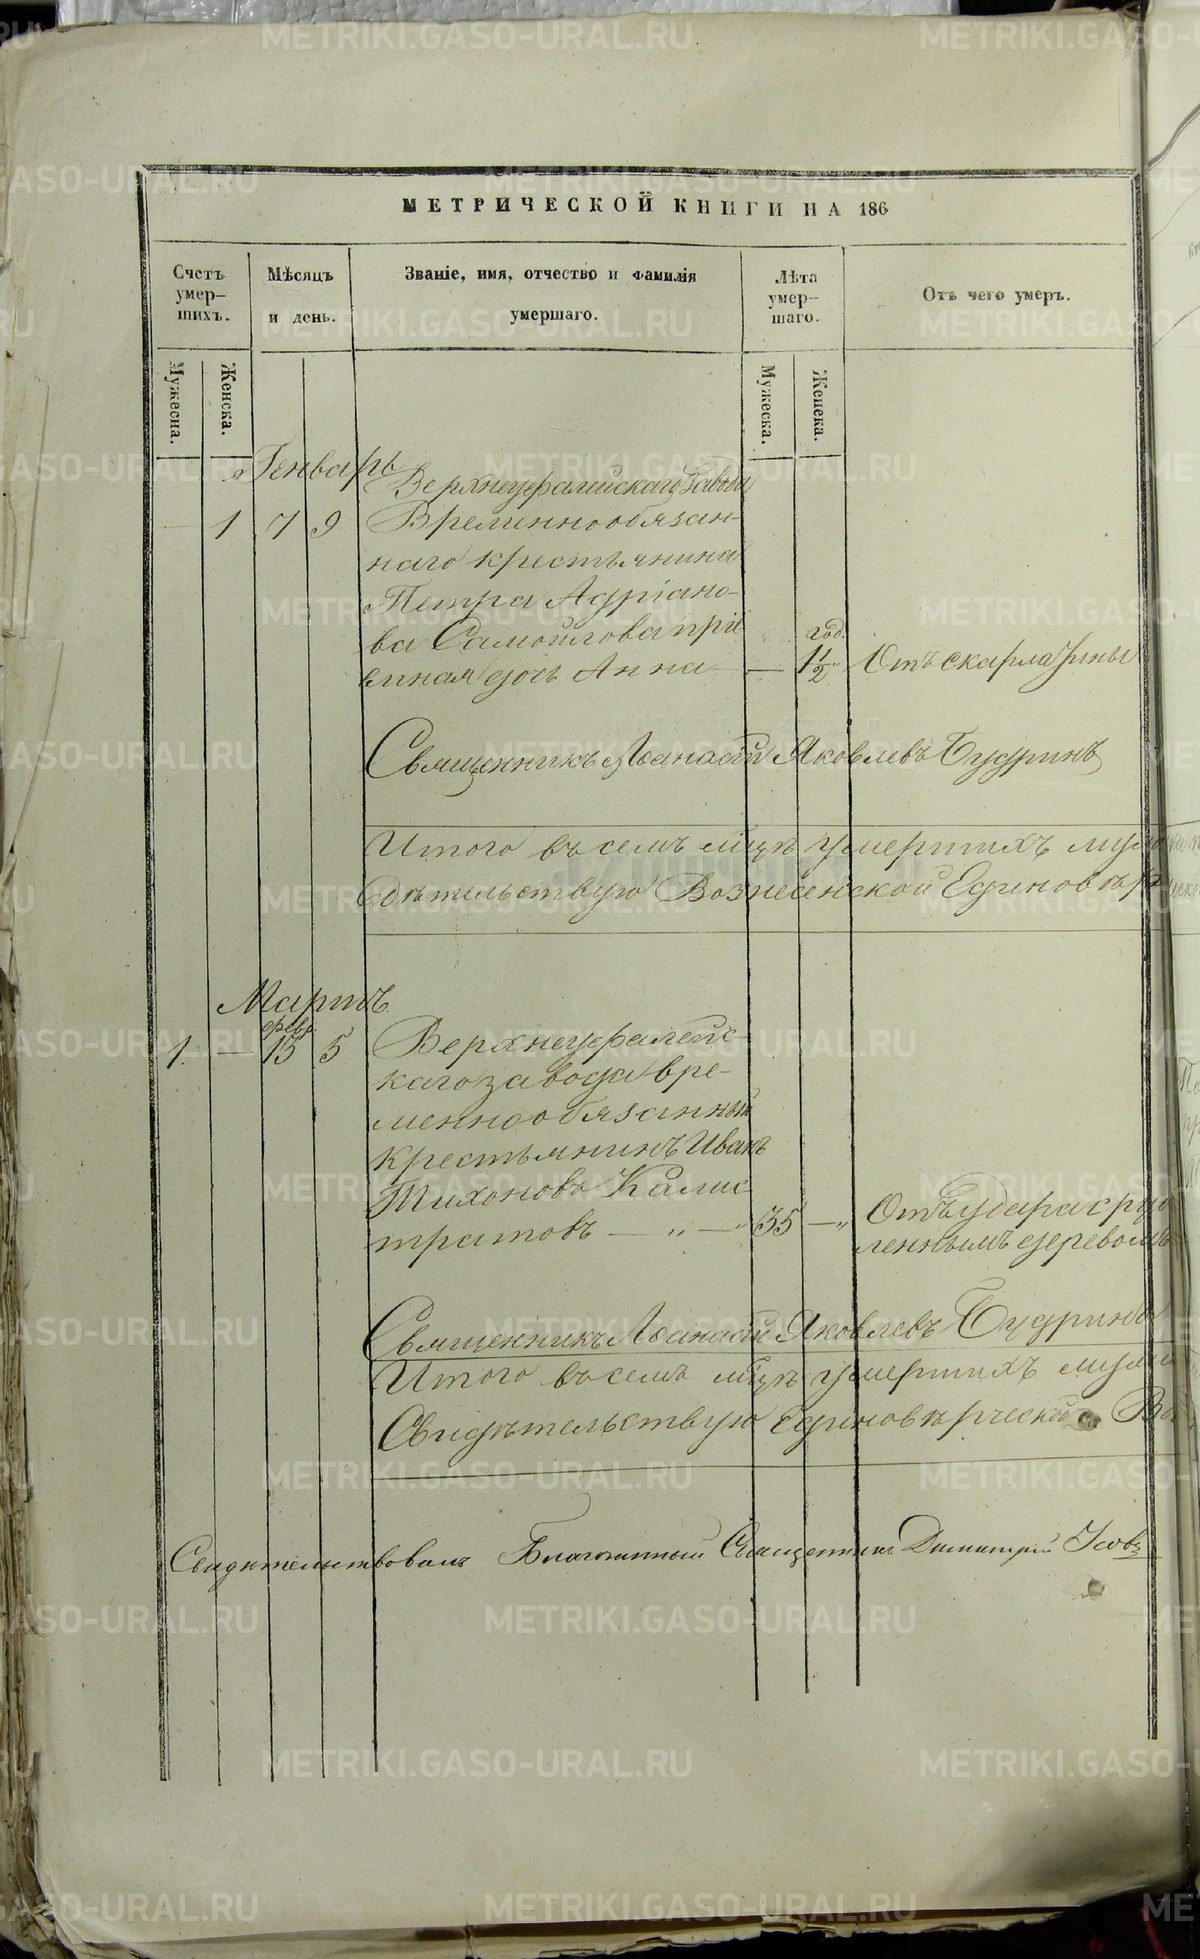 МЕТРИЧЕСКОЙ КНИГИ НА 186
Счетъ умер-шихъ.
Мѣсяцъ и день.
Званіе, имя, отчество и фамилія умершаго.
Лѣта умер-шаго.
Отъ чего умеръ.
Мужеска.
Женска.
Мужеска.
Женска.
Генварь
Верхнеуфалейскаго Завода
1 7 9 Временнообязан-
наго крестьянина
Петра Адріано-
ва Самойлова пріе
год.
мная дочь Анна — 1 1/2 Отъ скарлатины
Священникъ Аѳанасій Яковлевъ Будринъ
Итого въ семъ мцѣ умершихъ муж
Свидѣтельствую Вознесенской Единовѣр
Мартъ
февр
1. — 15 5 Верхнеуфалейс-
каго завода вре-
меннообязанный
крестьянинъ Иванъ
Тихоновъ Калис
тратовъ — „ — „ 35 — „ Отъ удара сруб
леннымъ деревомъ
Священникъ Аѳанасій Яковлевъ Будринъ
Итого въ семъ мцѣ умершихъ муже
Свидѣтельствую Единовѣрческой Во
Свидѣтельствовалъ Благочинный Священникъ Димитрій Усовъ
METRIKI.GASO-URAL.RU